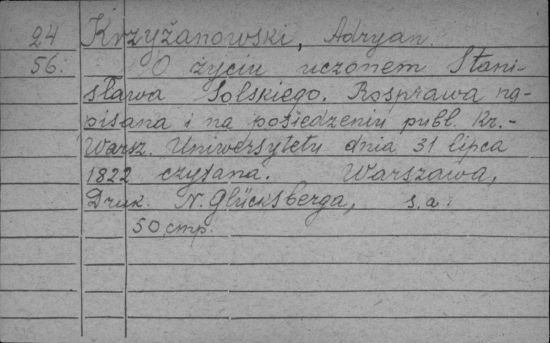 24 Krzyżanowski, Adryan.
56. O życiu uczonem Stani-
sława Solskiego. Rosprawa na-
pisana i na posiedzeniu publ. Kr.-
Warsz. Uniwersytetu dnia 31 lipca
1822 czytana. Warszawa,
Druk. N. Glücksberga, s.a.
50 cmp.